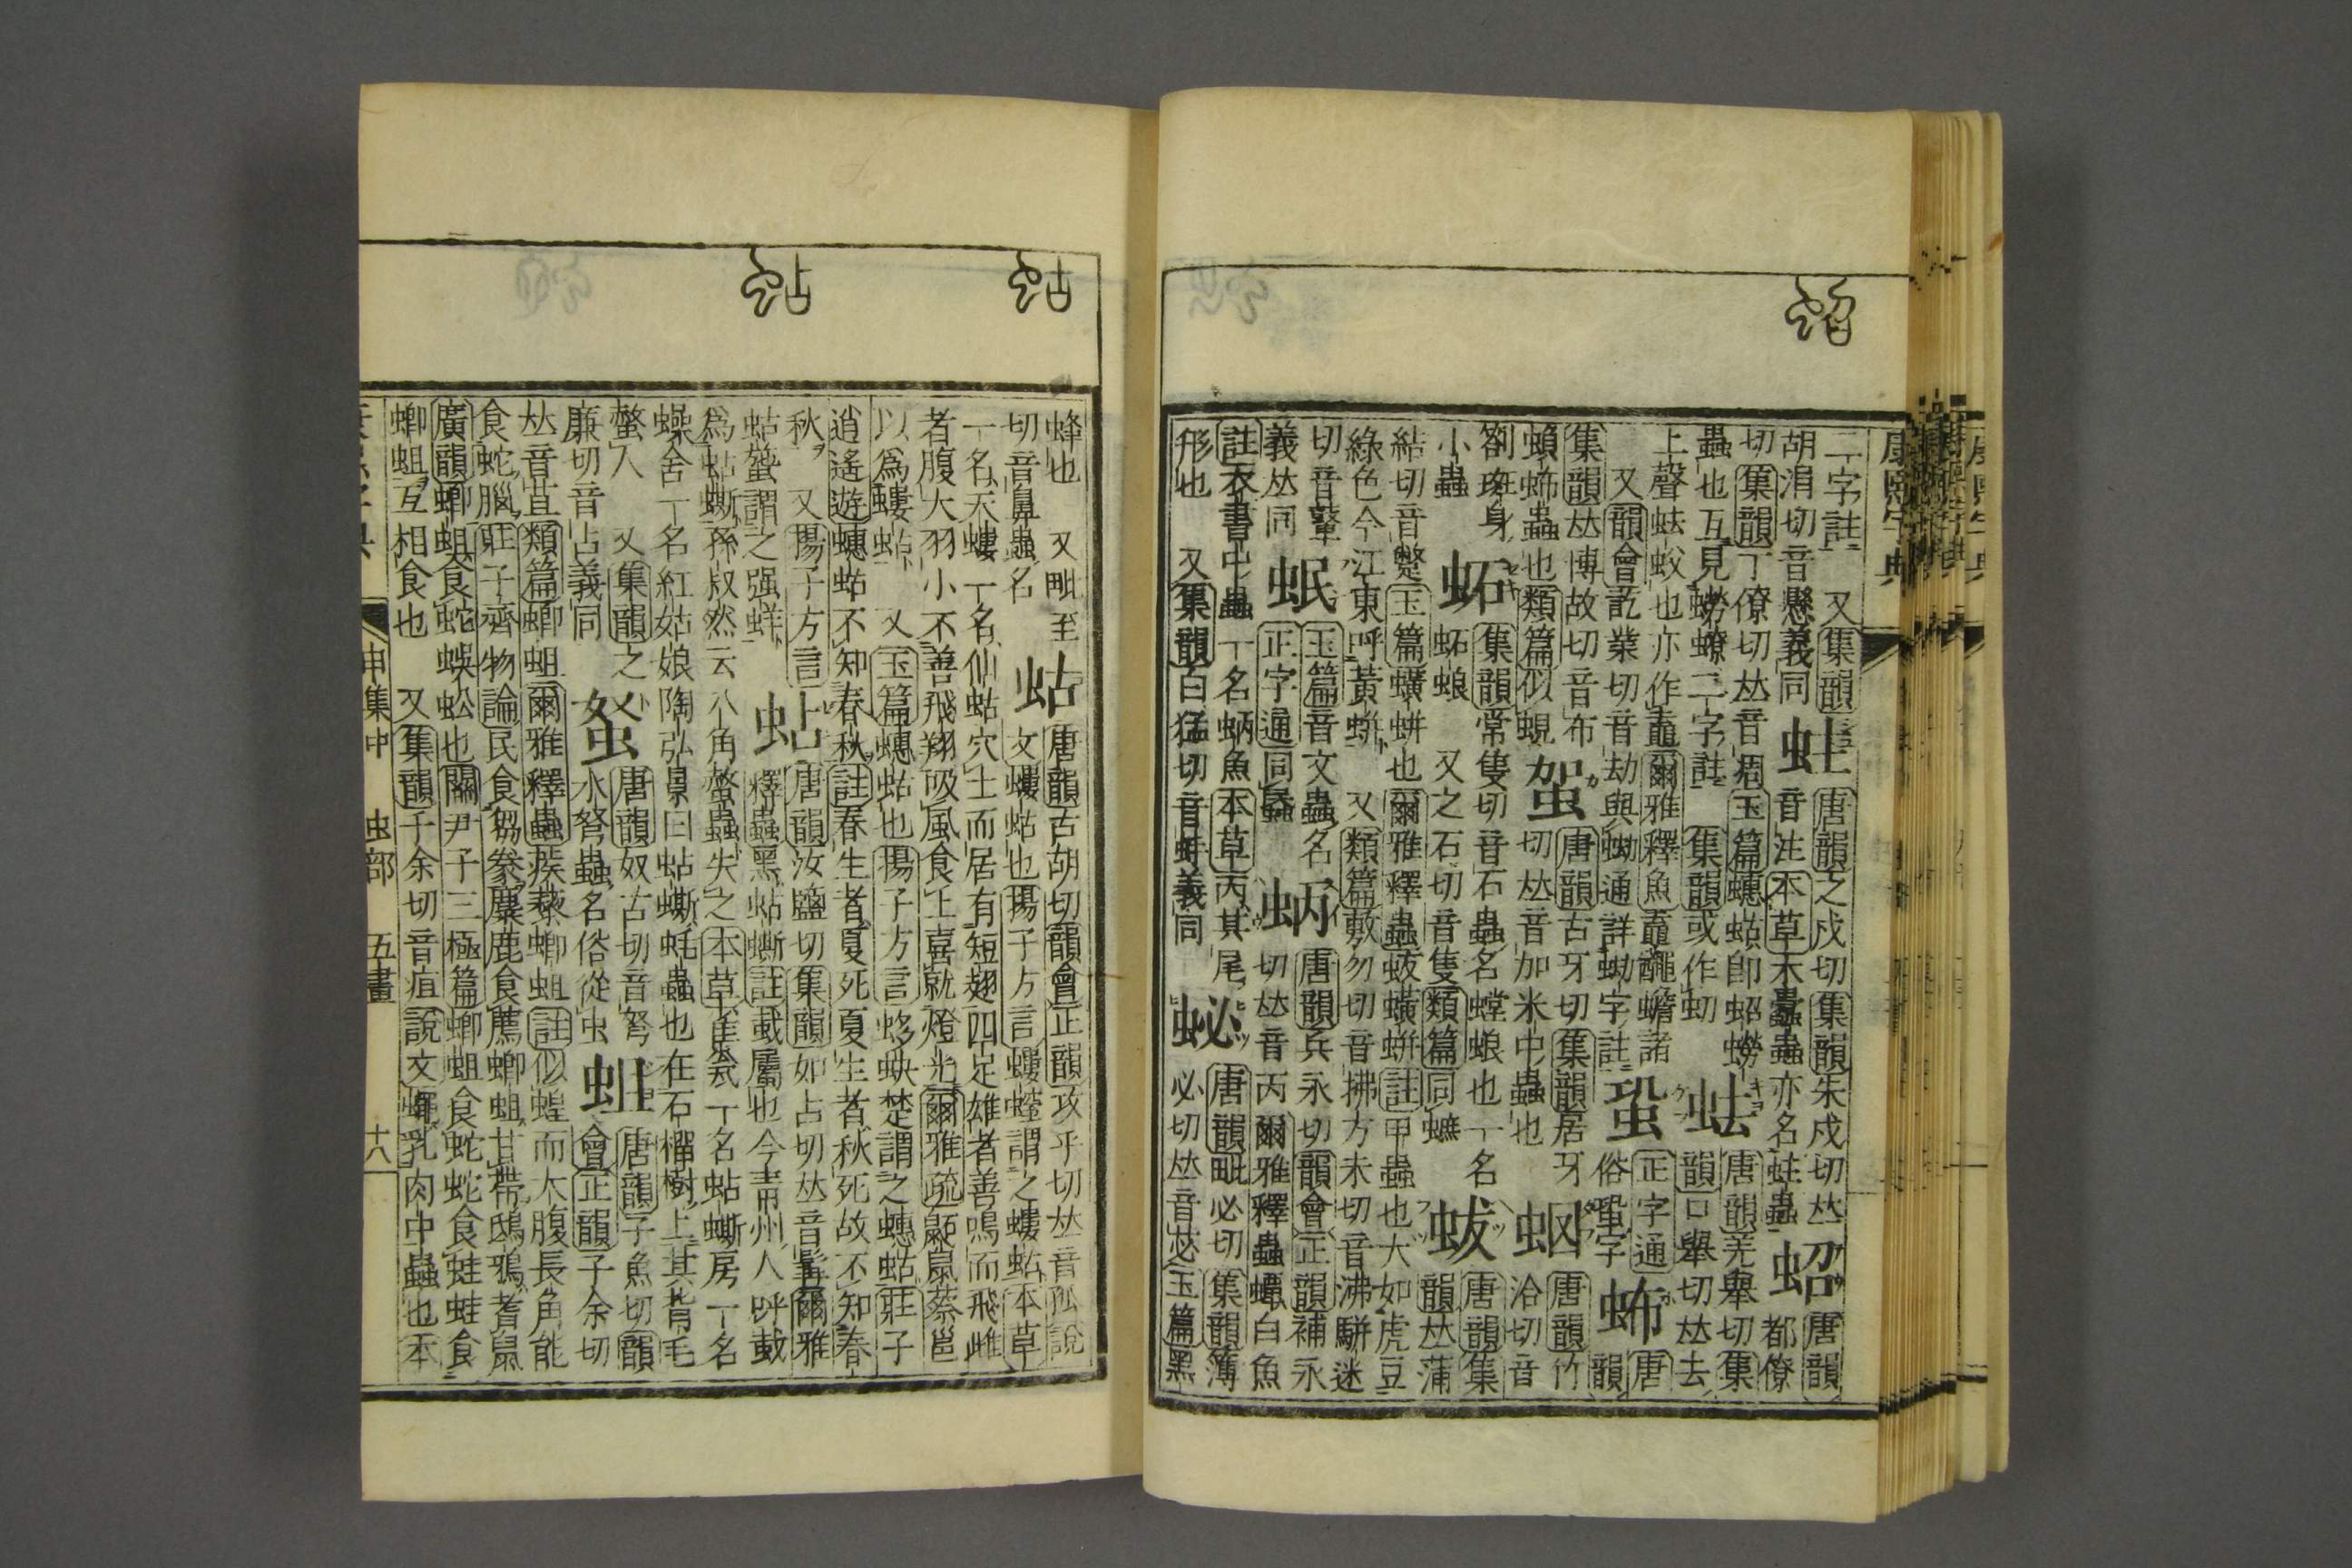 康熙字典
二字註 又集韻 蛀 唐韻之戍切集韻朱戍切𠀤 蛁 唐韻
胡涓切音懸義同 音注本草木蠹蟲亦名蛀蟲 都僚
切集韻丁僚切𠀤音貂玉篇蟪蛄卽蛁蟧 𧉧 唐韻羌舉切集
蟲也互見蟧蟟二字註 集韻或作 韻口舉切𠀤去
上聲 也亦作鼁爾雅釋魚鼁 蟾諸 蛩 正字通 唐
又韻會訖業切音劫與蚴通詳蚴字註 俗蛩字 韻
集韻𠀤博故切音布 唐韻古牙切集韻居牙 唐韻竹
蟲也類篇似蜆 切𠀤音加米中蟲也 洽切音
劄斑身 集韻常隻切音石蟲名螳蜋也一名 蛂 唐韻集
小蟲 蜋 又之石切音隻類篇同䗪 韻𠀤蒲
結切音蹩玉篇蟥蛢也爾雅釋蟲蛂蟥蛢註甲蟲也大如虎豆
綠色今江東呼黃蛢 又類篇敷勿切音拂方未切音沸駢迷
切音鼙 蚊 玉篇音文蟲名 蛃 唐韻兵永切韻會正韻補永
義𠀤同 正字通同蟁 切𠀤音丙爾雅釋蟲蟫白魚
註衣書中蟲一名蛃魚本草丙其尾 䖩 唐韻毗必切集韻簿
形也 又集韻白猛切音 義同 必切𠀤音苾玉篇黑
蜂也 又毗至 蛄 唐韻古胡切韻會正韻攻乎切𠀤音孤說
切音鼻蟲名 文螻蛄也揚子方言螻螲謂之螻蛄本草
一名天螻一名仙蛄穴土而居有短翅四足雄者善鳴而飛雌
者腹大羽小不善飛翔吸風食土喜就燈光爾雅疏鼫鼠蔡邕
以爲螻蛄 又玉篇蟪蛄也揚子方言蛥蚗楚謂之蟪蛄莊子
逍遙遊蟪蛄不知春秋註春生者夏死夏生者秋死故不知春
秋 又揚子方言 蛅 唐韻汝鹽切集韻如占切𠀤音髥爾雅
蛄䗐謂之强蛘 釋蟲黑蛅蟖註蛓屬也今靑州人呼蛓
爲蛅蟖孫叔然云八角螫蟲失之本草雀瓮一名蛅蟖房一名
蠑舍一名紅姑娘陶弘景曰蛅蟖蚝蟲也在石榴樹上其背毛
螫人 又集韻之 唐韻奴古切音弩 蛆 唐韻子魚切韻
廉切音占義同 水弩蟲名俗從虫 會正韻子余切
𠀤音苴類篇蝍蛆爾雅釋蟲蒺蔾蝍蛆註似蝗而大腹長角能
食蛇腦莊子齊物論民食芻豢麋鹿食薦蝍蛆甘帶鴟鴉耆鼠
廣韻蝍蛆食蛇蜈蚣也關尹子三極篇蝍蛆食蛇蛇食蛙蛙食
蝍蛆互相食也 又集韻千余切音疽說文蠅乳肉中蟲也本
康熙字典 申集中 虫部 五畫 十八